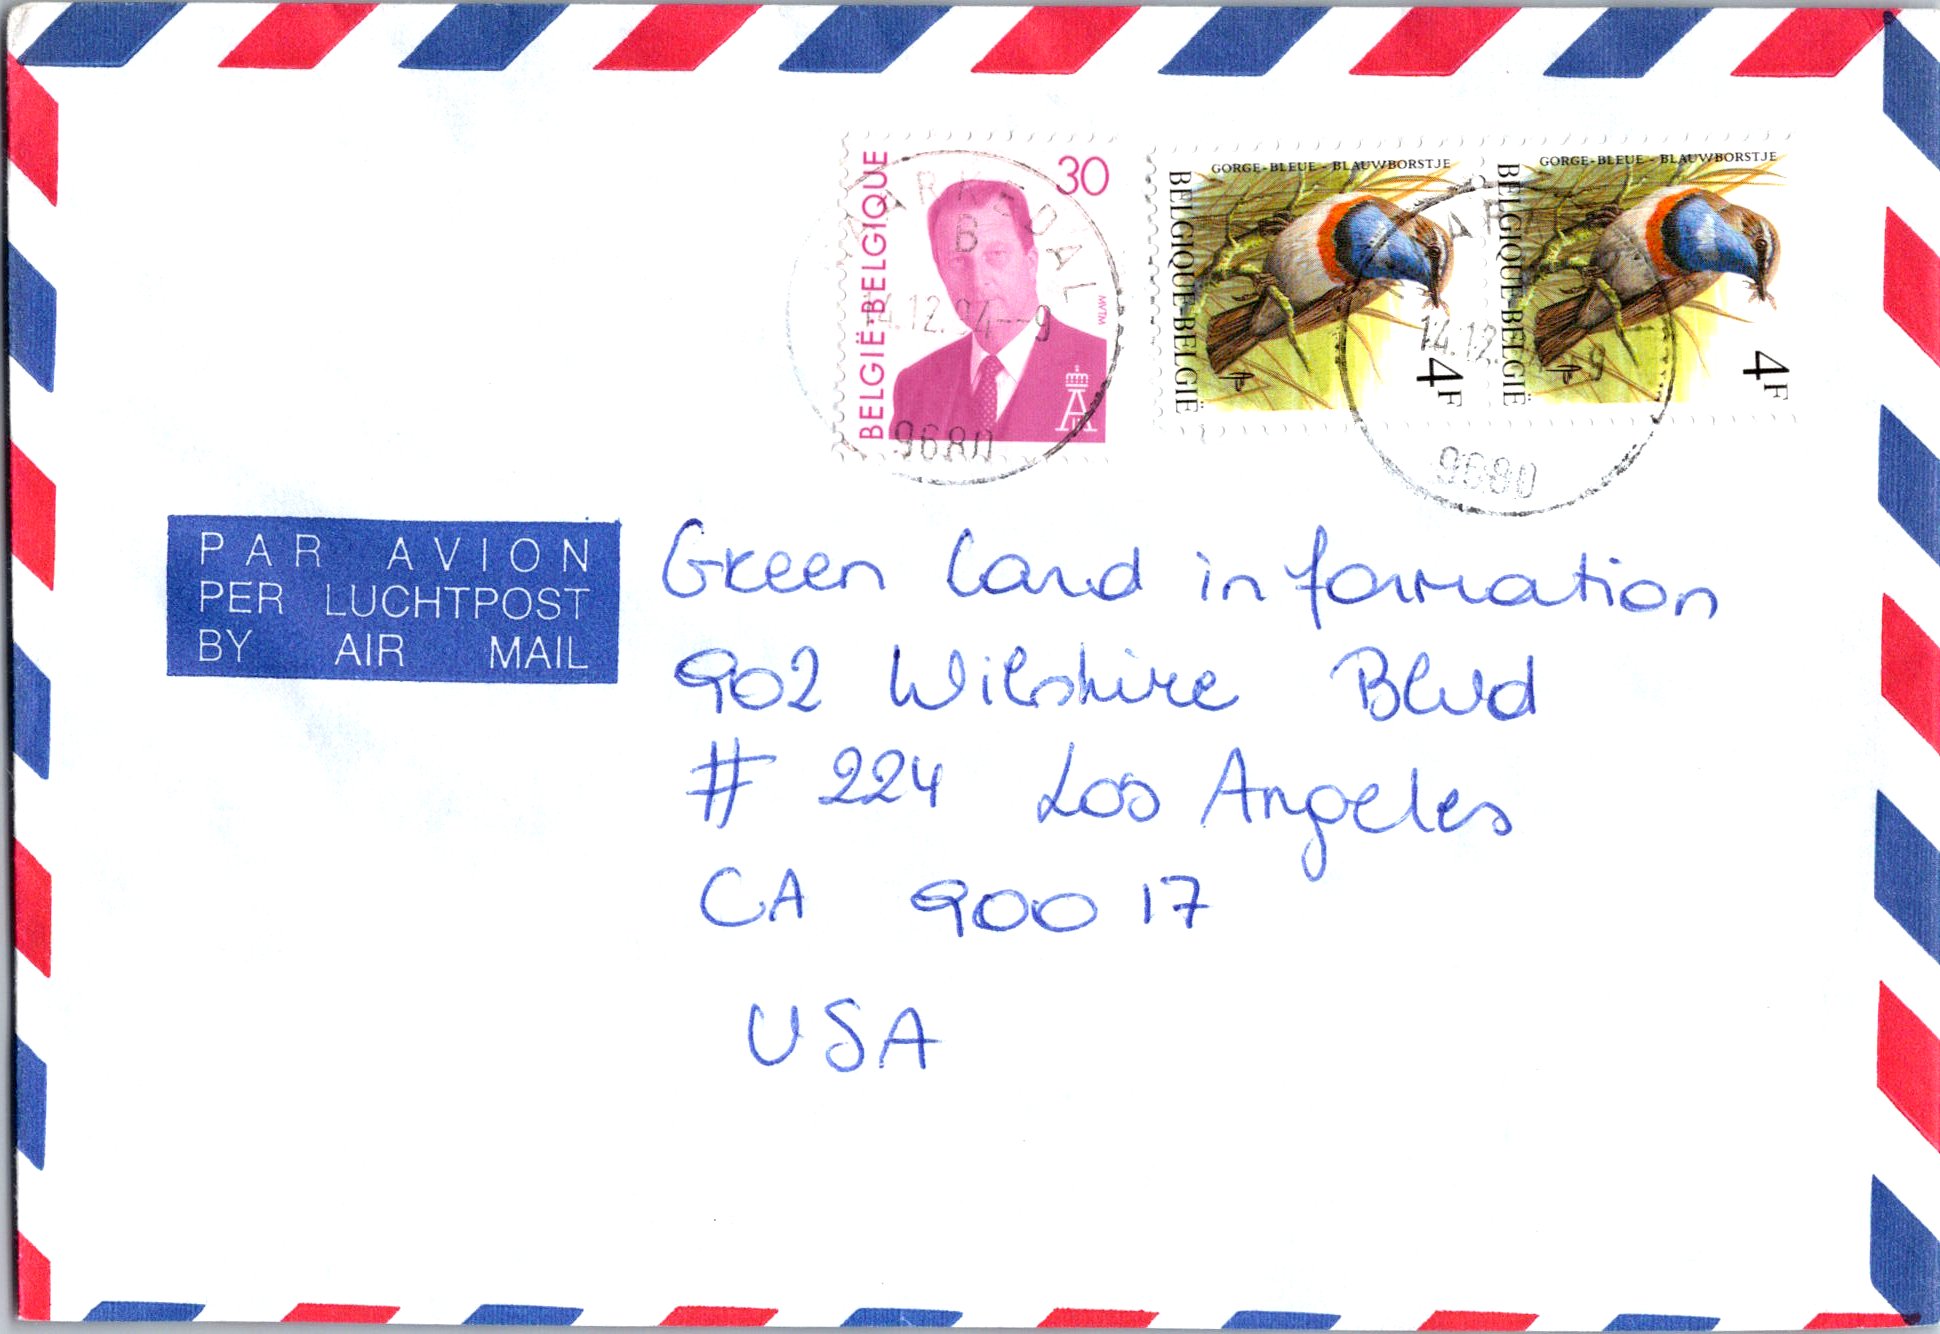 30
BELGIË-BELGIQUE
MVTM
B
14.12.94--9
9680
GORGE-BLEUE - BLAUWBORSTJE
BELGIQUE-BELGIË
4F
GORGE-BLEUE - BLAUWBORSTJE
BELGIQUE-BELGIË
4F
9680
PAR AVION
PER LUCHTPOST
BY AIR MAIL
Green Card information
902 Wilshire Blvd
# 224 Los Angeles
CA 90017
USA